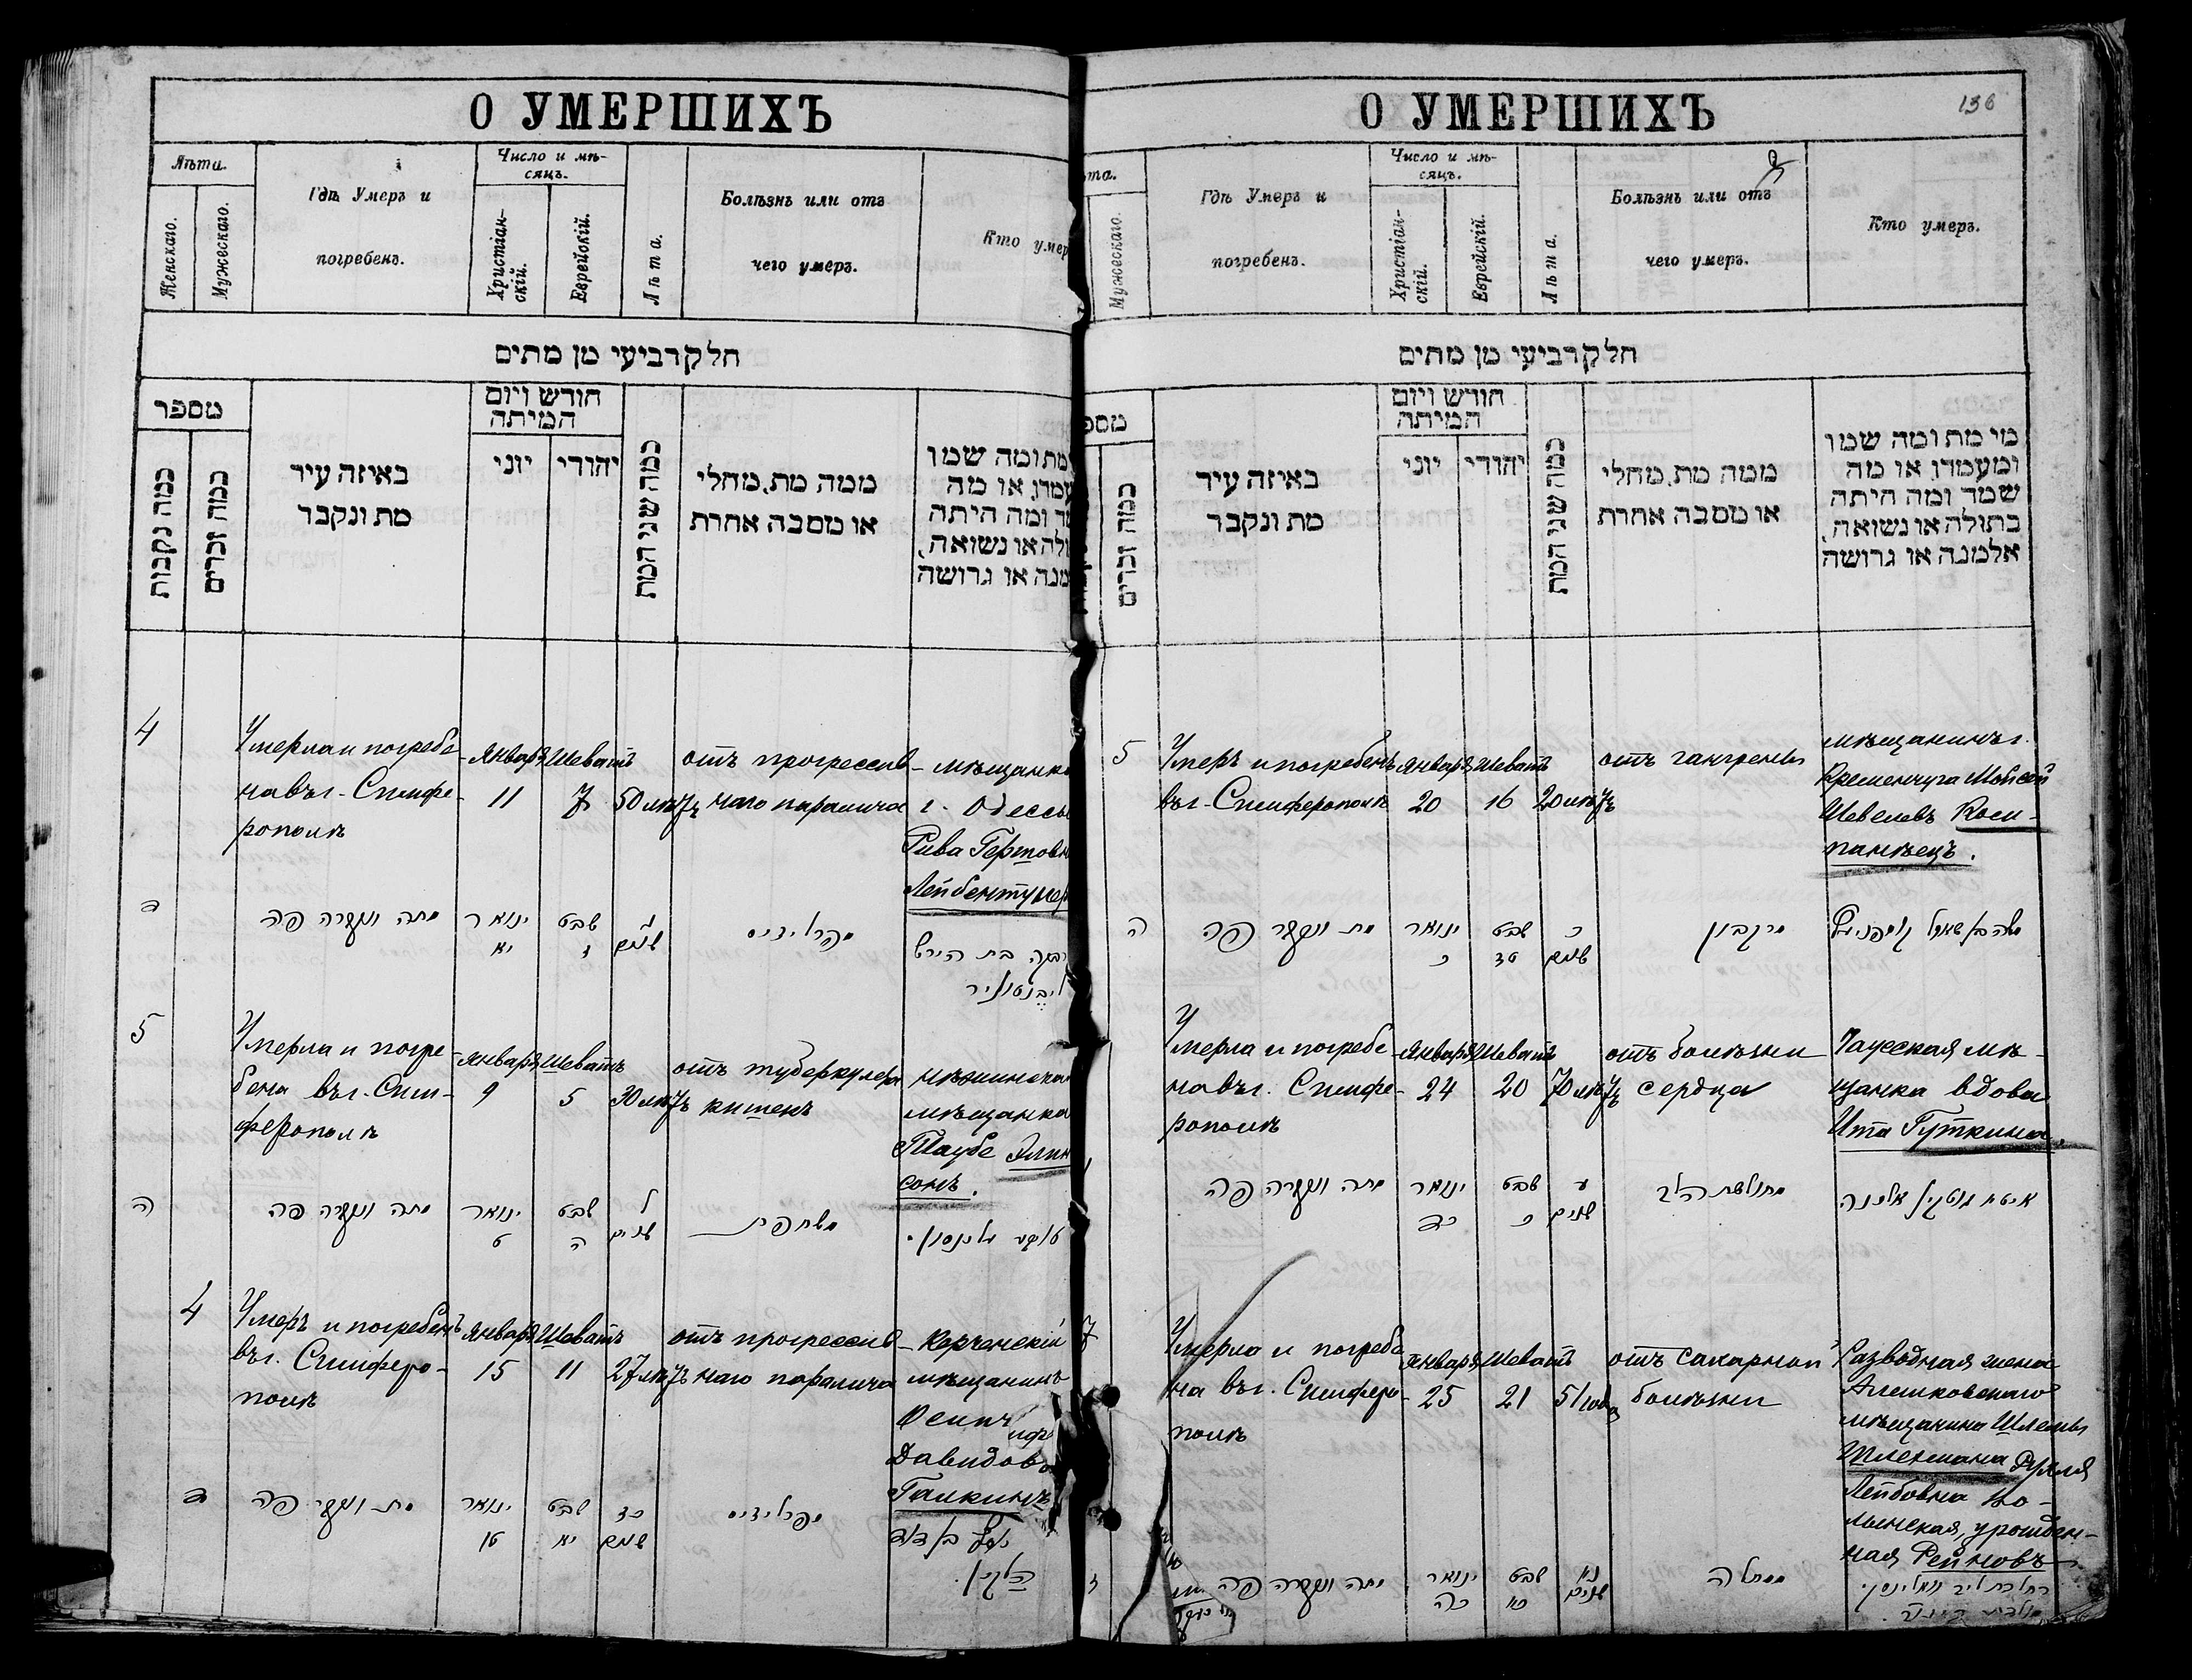 О УМЕРШИХЪ
Лѣта.
Женскаго.
Мужескаго.
Гдѣ Умеръ и
погребенъ.
Число и мѣ-
сяцъ.
Христіан-
скій.
Еврейскій.
Лѣта.
Болѣзнь или отъ
чего умеръ.
Кто умер
חלק רביעי מן מתים
מספר
כמה נקבות
כמה זכרים
באיזה עיר
מת ונקבר
חודש ויום
המיתה
יוני
יהודי
כמה שני המת
ממה מת, מחלי
או מסבה אחרת
מת ומה שמו
עמדו, או מה
ומה היתה
ולה או נשואה,
מנה או גרושה
4
Умерла и погребе-
на въ г. Симфе-
рополѣ
Январъ
11
Шеватъ
7
50 лѣтъ
отъ прогрессив-
наго паралича
мѣщанка
г. Одессы
Рива Гертовн
Лейбентуле
מתה ונקברה פה
ינואר
יא
שבט
ז
שנים
רבקה בת הירש
5
Умерла и погре-
бена въ г. Сим-
ферополѣ
Январъ
9
Шеватъ
5
30 лѣтъ
отъ туберкулеза
кишекъ
нѣжинская
мѣщанка
Таубе Элин
сонъ.
ה
מתה ונקברה פה
ינואר
ט
שבט
ה
ל
שנים
משחפת
4
Умеръ и погребенъ
въ г. Симферо-
полѣ
Январъ
15
Шеватъ
11
27 лѣтъ
отъ прогрессив-
наго паралича
Керченскій
мѣщанинъ
Осипъ
Давидов
Галкинъ
מת ונקבר פה
ינואר
טו
שבט
יא
שנים
יוסף בן דוד
О УМЕРШИХЪ
136
та.
Мужескаго.
Гдѣ Умеръ и
погребенъ.
Число и мѣ-
сяцъ.
Христіан-
скій.
Еврейскій.
Лѣта.
Болѣзнь или отъ
чего умеръ.
Кто умеръ.
חלק רביעי מן מתים
מספ
כמה זכרים
באיזה עיר
מת ונקבר
חודש ויום
המיתה
יוני
יהודי
כמה שני המת
ממה מת, מחלי
או מסבה אחרת
מי מת ומה שמו
ומעמדו, או מה
שמה ומה היתה
בתולה או נשואה,
אלמנה או גרושה
5
Умеръ и погребенъ
въ г. Симферополѣ
Январъ
20
Шеватъ
16
20 лѣтъ
отъ гангрены
мѣщанинъ г.
Кременчуга Мойсей
Шевелевъ Ком-
панѣецъ.
ה
מת ונקבר פה
ינואר
כ
שבט
טז
כ
שנים
מרקבון
Умерла и погребе-
на въ г. Симфе-
рополѣ
Январъ
24
Шеватъ
20
70 лѣтъ
отъ болѣзни
сердца
Чаусская мѣ-
щанка вдова
Ита Гуткина.
מתה ונקברה פה
ינואר
כד
שבט
כ
ע
שנים
מחולשת הלב
איטא גוטקין אלמנה
7
Умерла и погребе
на въ г. Симферо-
полѣ
Январъ
25
Шеватъ
21
51 года
отъ сахарной
болѣзни
Разводная жена
Алешковскаго
мѣщанина Шлемы
Лейбовна Во-
лынская, урожден-
ная Рейновъ
מתה ונקברה פה
ינואר
כה
שבט
כא
נא
שנים